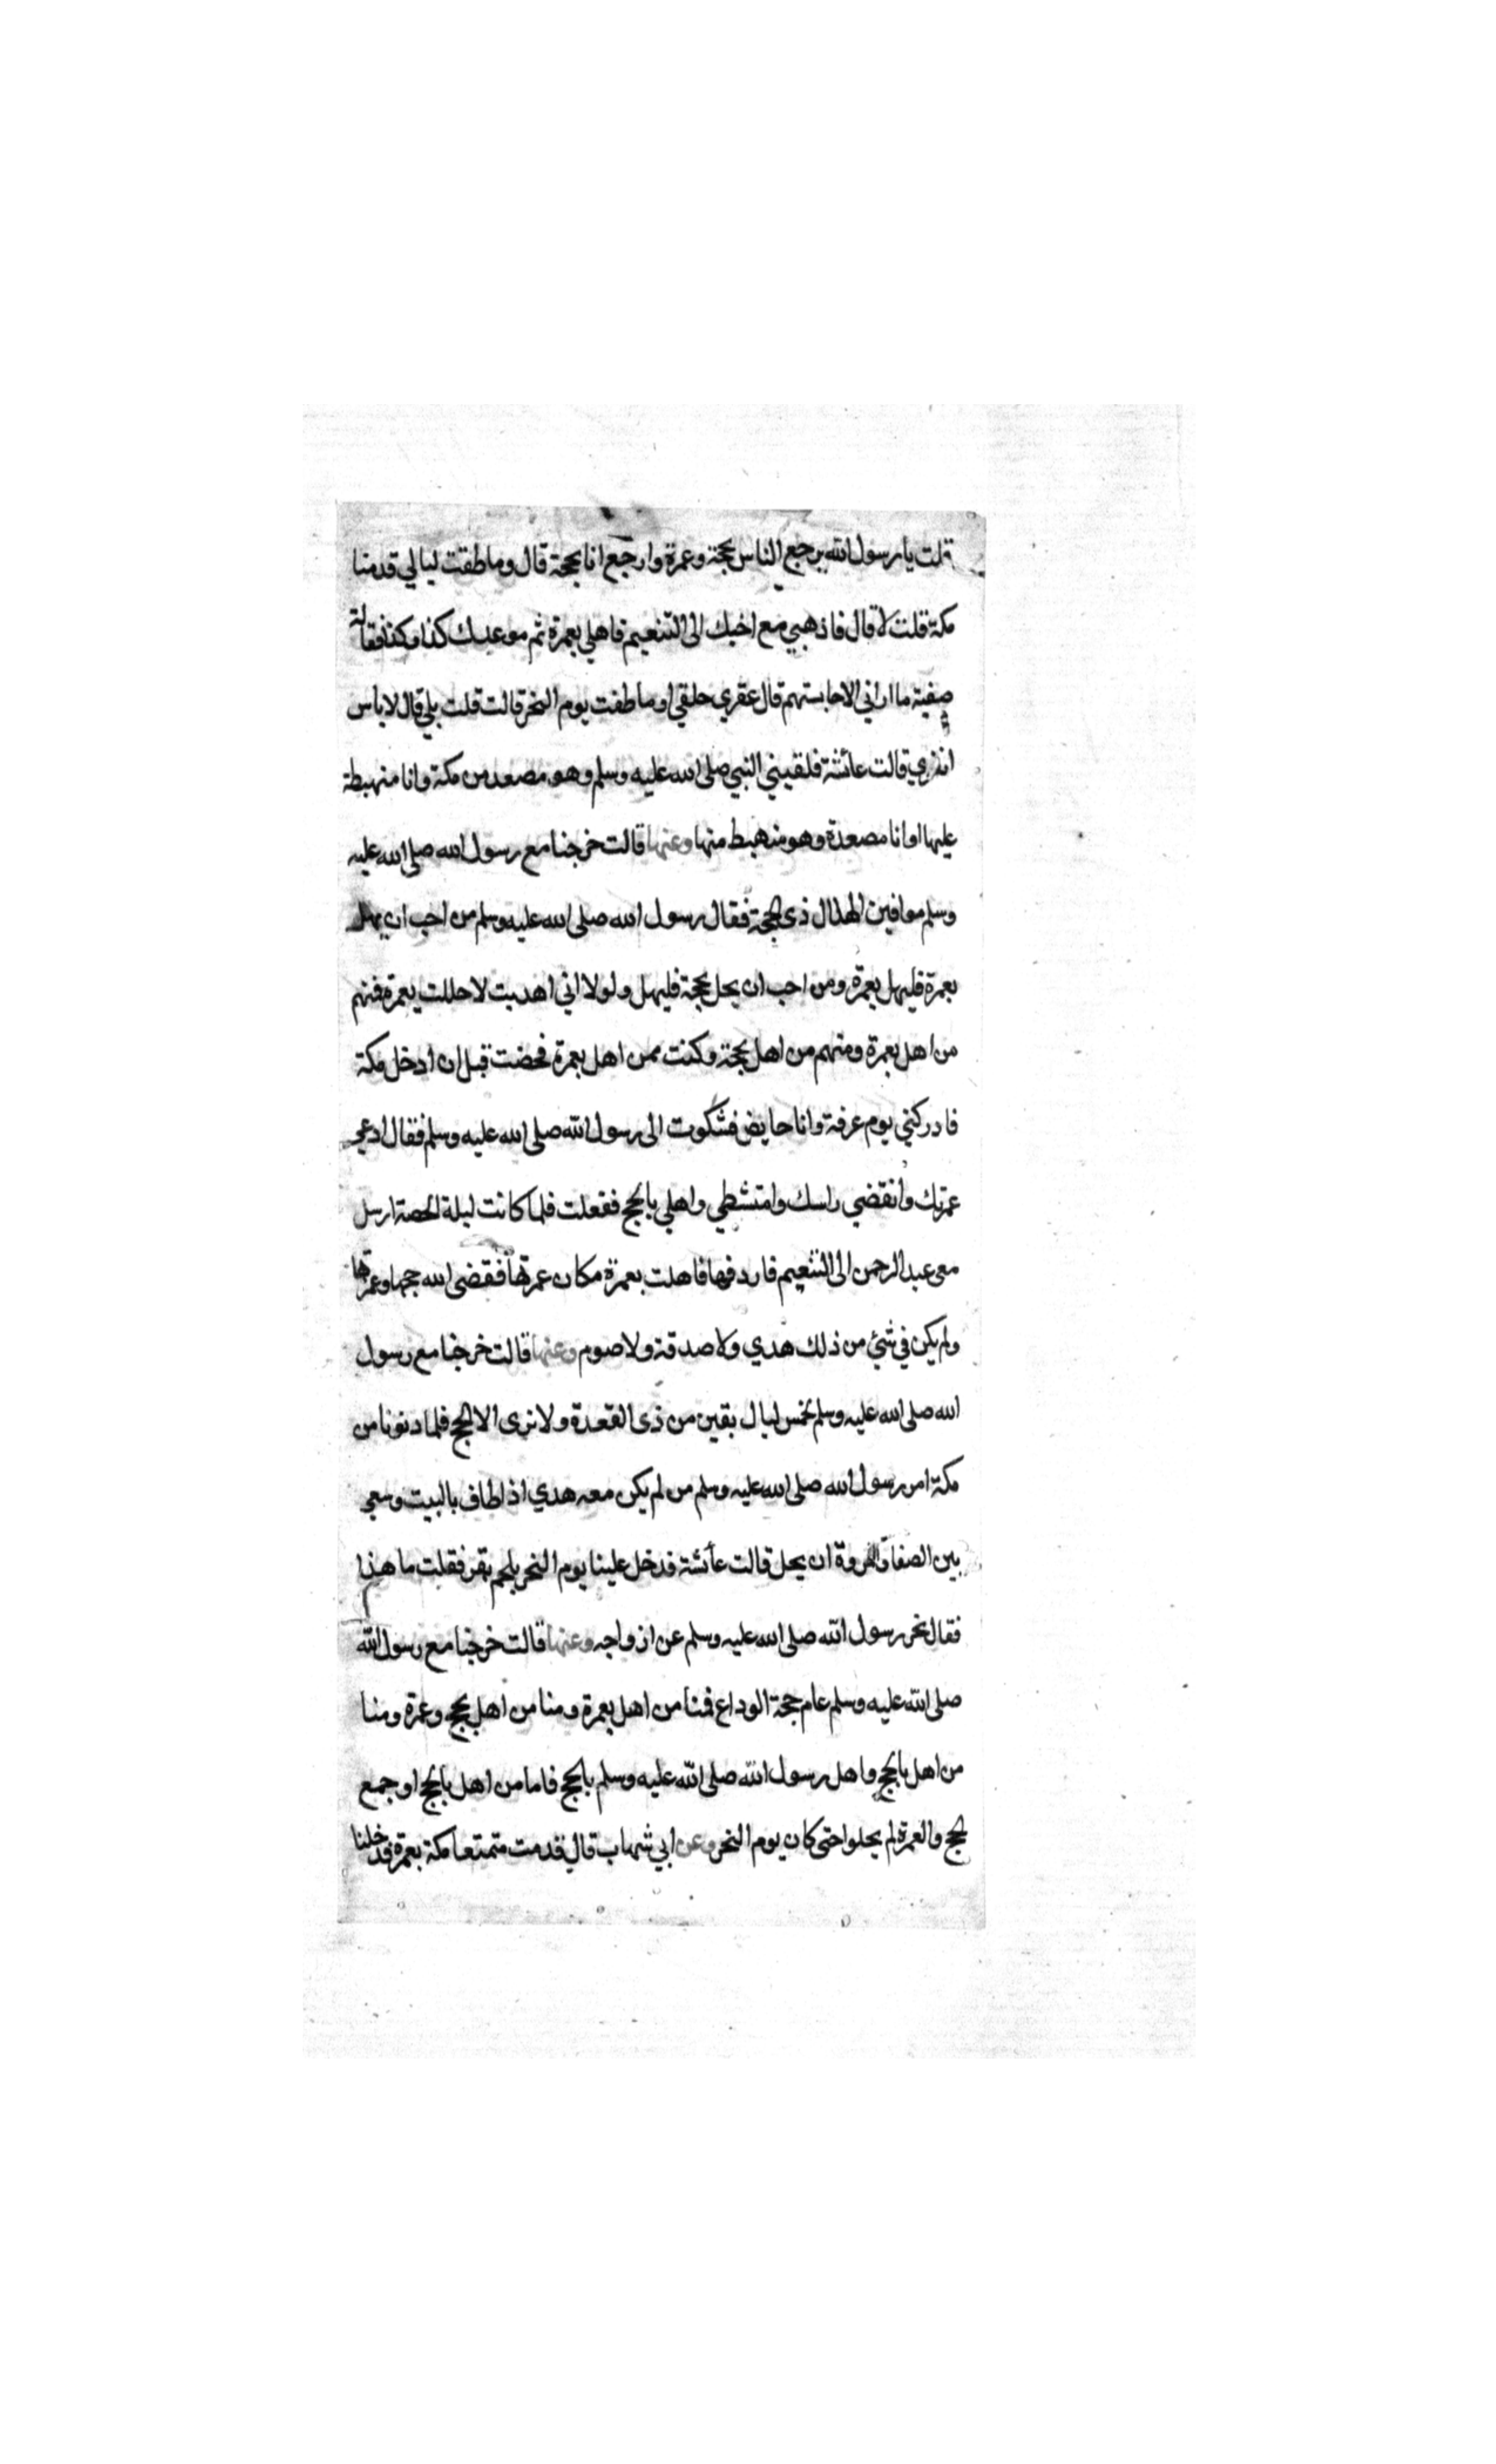 قلت يا رسول الله يرجع الناس بحجة وعمرة وارجع انا بحجة قال وما طفت ليالي قدمنا
مكة قلت لا قال فاذهبي مع اخيك الى التنعيم فاهلي بعمرة ثم موعدك كذا وكذا فقالت
صفية ما اراني الا حابستهم قال عقري حلقي او ما طفت يوم النحر قالت قلت بلي قال لا باس
انفري قالت عائشة فلقيني النبي صلى الله عليه وسلم وهو مصعد من مكة وانا منهبطة
عليها او انا مصعدة وهو منهبط منها وعنها قالت خرجنا مع رسول الله صلى الله عليه
وسلم موافين لهلال ذي الحجة فقال رسول الله صلى الله عليه وسلم من احب ان يهل
بعمرة فليهل بعمرة ومن احب ان يحل بحجة فليهل ولولا اني اهديت لاحللت بعمرة فمنهم
من اهل بعمرة ومنهم من اهل بحجة وكنت ممن اهل بعمرة فحضت قبل ان ادخل مكة
فادركني يوم عرفة وانا حايض فشكوت الى رسول الله صلى الله عليه وسلم فقال ادعي
عمرتك وانقضي راسك وامتشطي واهلي بالحج ففعلت فلما كانت ليلة الحصبة ارسل
معي عبد الرحمن الى التنعيم فاردفها فاهلت بعمرة مكان عمرتها فقضى الله حجها وعمرتها
ولم يكن في شئ من ذلك هدي ولا صدقة ولا صوم وعنها قالت خرجنا مع رسول
الله صلى الله عليه وسلم لخمس ليال بقين من ذي القعدة ولا نرى الا الحج فلما دنونا من
مكة امر رسول الله صلى الله عليه وسلم من لم يكن معه هدي اذا طاف بالبيت وسعى
بين الصفا والمروة ان يحل قالت عائشة فدخل علينا يوم النحر بلحم بقر فقلت ما هذا
فقال نحر رسول الله صلى الله عليه وسلم عن ازواجه وعنها قالت خرجنا مع رسول الله
صلى الله عليه وسلم عام حجة الوداع فمنا من اهل بعمرة ومنا من اهل بحج وعمرة ومنا
من اهل بالحج واهل رسول الله صلى الله عليه وسلم بالحج فاما من اهل بالحج او جمع
الحج والعمرة لم يحلوا حتى كان يوم النحر وعن ابي شهاب قال قدمت متمتعا مكة بعمرة فدخلنا